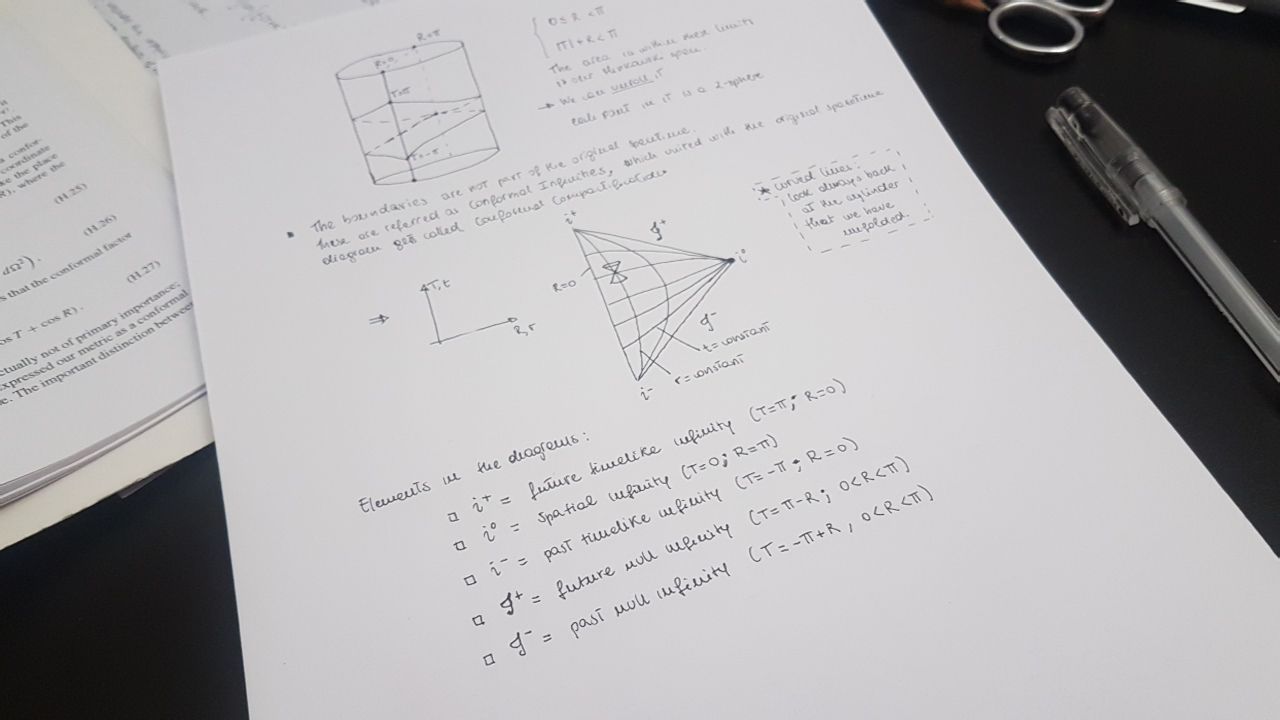 This
of the
a confor-
coordinate
ke the place
R), where the
(H.25)
(H.26)
dΩ²).
s that the conformal factor
(H.27)
os T + cos R).
ctually not of primary importance;
expressed our metric as a conformal
e. The important distinction between
R=π
R=0
T=π
T=-π
0 ≤ R < π
|T| + R < π
The area is within these limits
is our Minkowski space.
→ We can unroll it
each point in it is a 2-sphere
• The boundaries are not part of the original spacetime.
these are referred as conformal Infinities, which united with the original spacetime
diagram get called Conformal Compactification.
* curved lines:
look always back
at the cylinder
that we have
unfolded.
⇒
T,t
R,r
i⁺
𝒥⁺
i⁰
R=0
𝒥⁻
t=constant
r=constant
i⁻
Elements in the diagrams:
□ i⁺ = future timelike infinity (T=π; R=0)
□ i⁰ = spatial infinity (T=0; R=π)
□ i⁻ = past timelike infinity (T=-π; R=0)
□ 𝒥⁺ = future null infinity (T=π-R; 0<R<π)
□ 𝒥⁻ = past null infinity (T=-π+R, 0<R<π)